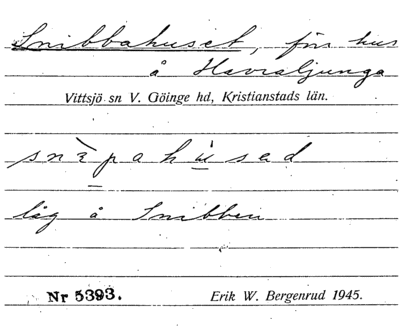 Snibbahuset, förr hus
å Havraljunga
Vittsjö sn V. Göinge hd, Kristianstads län.
låg å Snibben
Nr 5393.
Erik W. Bergenrud 1945.